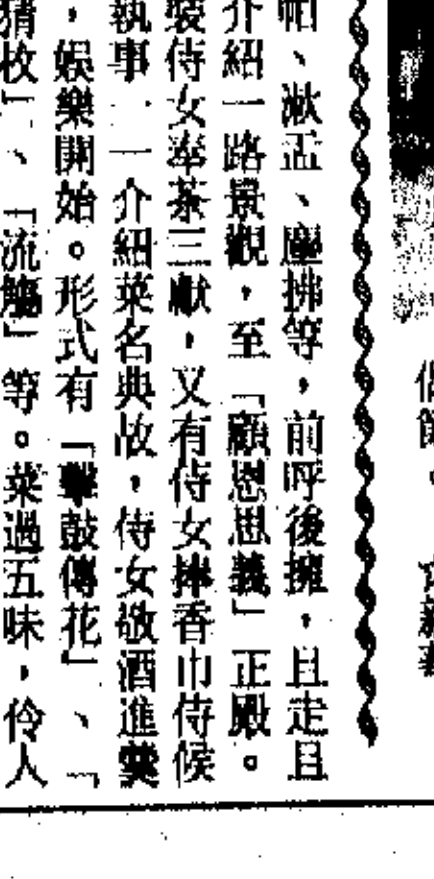 帕、漱盂、塵拂等，前呼後擁，且走且
介紹一路景觀，至「顧恩思義」正殿。
裝侍女奉茶三獻，又有侍女捧香巾侍候
執事一一介紹菜名典故，侍女敬酒進羹
，娛樂開始。形式有「擊鼓傳花」、「
猜枚」、「流觴」等。菜過五味，伶人